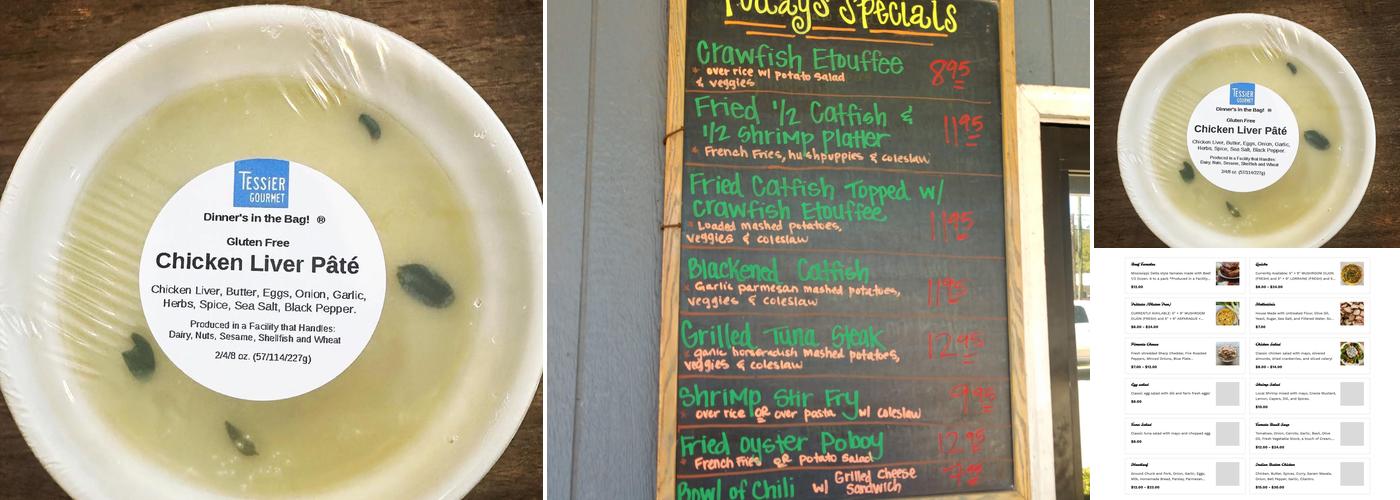 TESSIER
GOURMET
Dinner's in the Bag! ®
Gluten Free
Chicken Liver Pâté
Chicken Liver, Butter, Eggs, Onion, Garlic,
Herbs, Spice, Sea Salt, Black Pepper.
Produced in a Facility that Handles:
Dairy, Nuts, Sesame, Shellfish and Wheat
2/4/8 oz. (57/114/227g)
Today's Specials
Crawfish Etouffee 8.95
* over rice w/ potato salad
& veggies
Fried 1/2 Catfish &
1/2 Shrimp Platter 11.95
* French Fries, hushpuppies & coleslaw
Fried Catfish Topped w/
Crawfish Etouffee 11.95
* Loaded mashed potatoes,
veggies & coleslaw
Blackened Catfish 11.95
* Garlic parmesan mashed potatoes,
veggies & coleslaw
Grilled Tuna Steak 12.95
* garlic horseradish mashed potatoes,
veggies & coleslaw
Shrimp Stir Fry 9.95
* over rice OR over pasta w/ coleslaw
Fried Oyster Poboy 12.95
* French Fries OR potato salad
Bowl of Chili w/ Grilled Cheese
Sandwich 7.95
TESSIER
GOURMET
Dinner's in the Bag! ®
Gluten Free
Chicken Liver Pâté
Chicken Liver, Butter, Eggs, Onion, Garlic,
Herbs, Spice, Sea Salt, Black Pepper.
Produced in a Facility that Handles:
Dairy, Nuts, Sesame, Shellfish and Wheat
2/4/8 oz. (57/114/227g)
Beef Tamales
Mississippi Delta style tamales made with Beef
$12.00
Quiche
$8.00 - $24.00
$8.00 - $24.00
House Made with Unbleached Flour, Olive Oil,
Yeast, Sugar, Sea Salt, and Filtered Water.
$7.00
Pimento Cheese
Fresh shredded Sharp Cheddar, Fire Roasted
Peppers, Minced Onions, Blue Plate...
$7.00 - $12.00
Chicken Salad
Classic chicken salad with mayo, slivered
almonds, dried cranberries, and sliced celery!
$8.00 - $14.00
Egg salad
Classic egg salad with dill and farm fresh eggs!
$8.00
Shrimp Salad
Local Shrimp mixed with mayo, Creole Mustard,
Lemon, Capers, Dill, and Spices.
$10.00
Tuna Salad
Classic tuna salad with mayo and chopped egg
$8.00
Tomato Basil Soup
Tomatoes, Onion, Carrots, Garlic, Basil, Olive
Oil, Fresh Vegetable Stock, a touch of Cream...
$12.00 - $24.00
Meatloaf
Ground Chuck and Pork, Onion, Garlic, Eggs,
Milk, Homemade Bread, Parsley, Parmesan...
Indian Butter Chicken
Chicken, Butter, Spices, Curry, Garam Masala,
Onion, Bell Pepper, Garlic, Cilantro.
$15.00 - $30.00